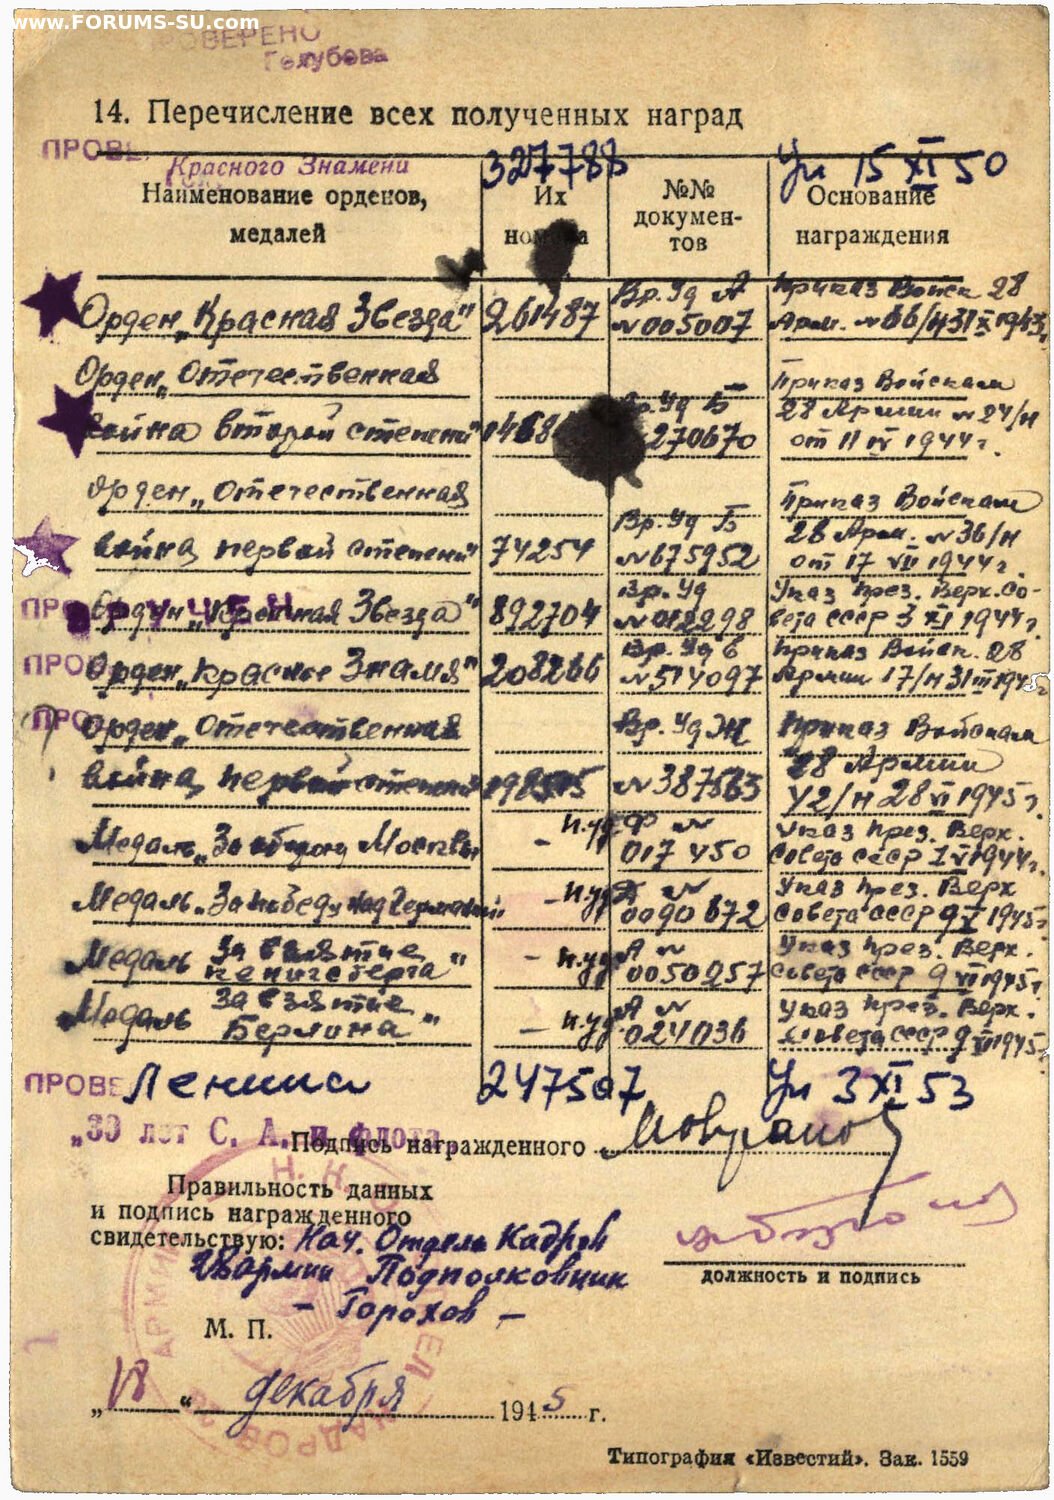 www.FORUMS-SU.com
ПРОВЕРЕНО
Голубева
14. Перечисление всех полученных наград
ПРОВЕ
Красного Знамени 327788 Ук 15 XI 50
Наименование орденов, медалей Их №№ документов Основание награждения
Орден „Красная Звезда" 261487 Вр. Уд А №005007 Приказ Войск 28 Арм. 1943
Орден „Отечественная
война второй степени" Вр. Уд Б 270670 Приказ Войскам 28 Армии № 24/н от 11 IV 1944 г.
Орден „Отечественная
война первой степени" 74254 Вр. Уд Б №675952 Приказ Войскам 28 Арм. № 36/н от 17 VII 1944 г.
ПРО ВРУЧЕН
Орден „Красная Звезда" 892704 Вр. Уд Указ През. Верх. Совета СССР 3 XI 1944 г.
ПРОВ
Орден „Красное Знамя" 208266 Вр. Уд В №514097 Приказ Войск. 28 Армии 17/н 31 III 1945 г.
ПРО
Орден „Отечественная
война первой степени" Вр. Уд Ж №387563 Приказ Войскам 28 Армии 42/н 28 VI 1945 г.
Медаль „За оборону Москвы" – н.уд. Ф № 017450 Указ През. Верх. Совета СССР 1 V 1944 г.
Медаль „За победу над Германией" – н.уд № 0090672 Указ През. Верх Совета СССР 9 V 1945 г.
Медаль „За взятие Кенигсберга" – н.уд А № 0050257 Указ През. Верх. Совета СССР 9 VI 1945 г.
Медаль „За взятие Берлина" – н.уд. А № 024036 Указ През. Верх. Совета СССР 9 VI 1945 г.
ПРОВЕ Ленина 247507 Ук 3 XI 53
„30 лет С. А. и флота
Подпись награжденного
Правильность данных
и подпись награжденного
свидетельствую: Нач. Отдела Кадров
28 армии Подполковник
– Горохов –
должность и подпись
М. П.
„18“ декабря 1945 г.
Типография «Известий». Зак. 1559